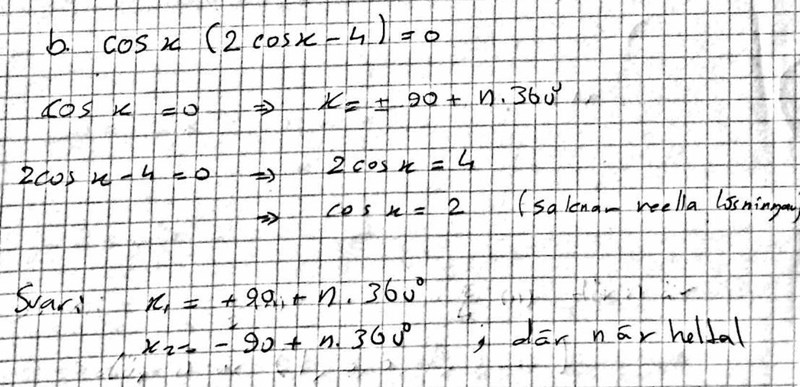 b. cos x (2 cos x - 4) = 0
cos x = 0 ⇒ x = ± 90 + n. 360°
2cos x - 4 = 0 ⇒ 2 cos x = 4
⇒ cos x = 2 (saknar reella lösningar)
Svar: x₁ = + 90 + n. 360°
x₂ = - 90 + n. 360° ; där n är heltal